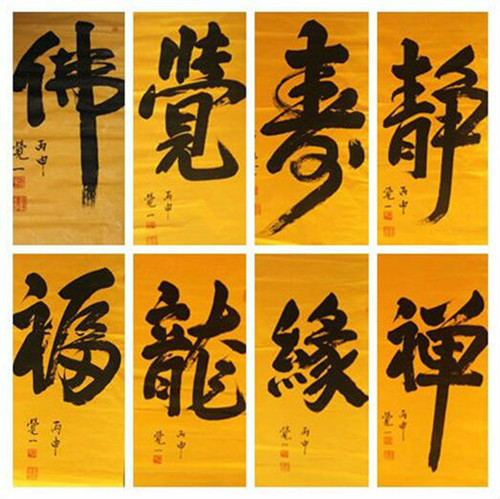 佛
丙申
覺一
覺
丙申
覺一
寿
静
丙申
覺一
福
丙申
覺一
龍
丙申
覺一
緣
丙申
覺一
禅
丙申
覺一